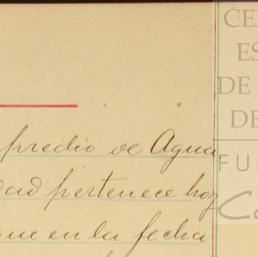 predio de Agua
dad pertenece hoy
que en la fecha
CE
ES
DE
DE
FU